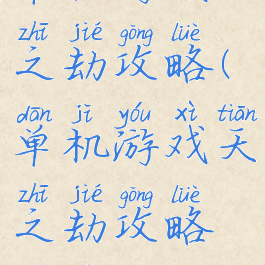 zhī jié gōng lüè
之劫攻略(
dān jī yóu xì tiān
单机游戏天
zhī jié gōng lüè
之劫攻略